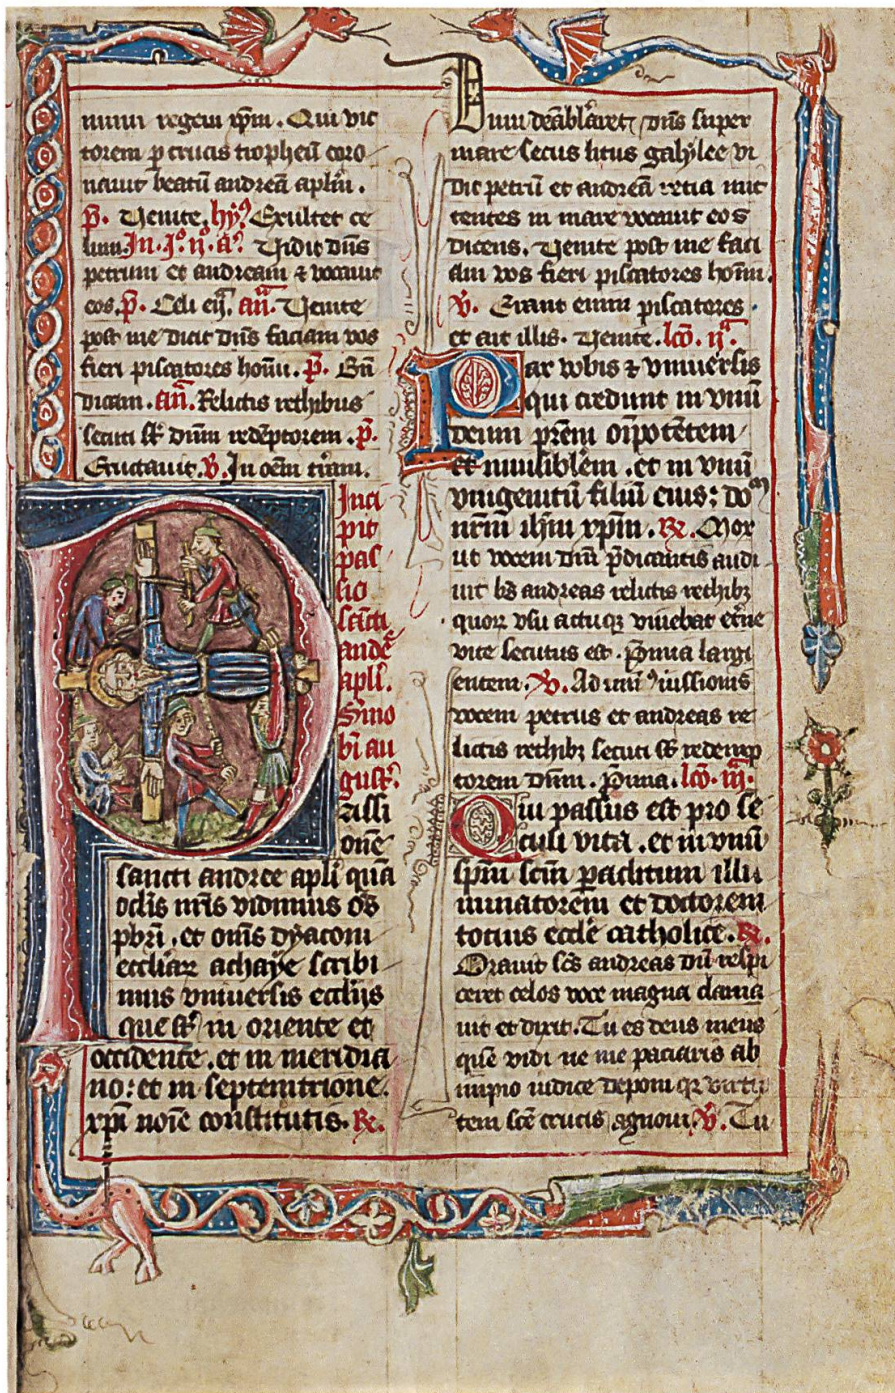 mum regem xpm. Qui vic
torem p crucis tropheu coro
navit beatu andrea aplm.
p. Uenite. hy9 Exultet ce
lum. In. j.o n.o a. Uidit dns
petrum et andream & vocavit
eos. p. Celi en. an. Uenite
post me dicit dns faciam vos
fieri piscatores homi. p. Bn
dicam. an. Relictis rethibus
secuti st dnm redeptorem. p.
Eructavit. v. In oem tram.
Inci
pit
pas
sio
scti
andree
apli.
Smo
bi au
gust.
Passi
one
sancti andree apli qua
oclis nris vidimus os
pbri. et oms dyaconi
eccliar achaye scribi
mus vniversis ecclijs
que st in oriente et
occidente. et in meridia
no: et in septemtrione.
xpi noie constitutis. R.
Dum deablaret dns super
mare secus litus galylee vi
dit petru et andrea retia mit
tentes in mare vocavit eos
dicens. Uenite post me faci
am vos fieri piscatores homi.
v. Erant enim piscatores.
et ait illis. Uenite. lco. ij.
Pax vobis & vniversis
qui credunt in vnu
deum prem oipotetem
et in vnu
vnigenitu filiu eius: dom
nrm ihm xpm. R. Mox
ut vocem dni pdicantis audi
vit bs andreas relictis rethibz
quor vsu actuqz vivebat etne
vite secutus est. Pmia largi
entem. v. Ad uni9 iussionis
vocem petrus et andreas re
lictis rethibz secuti st redemp
torem dnm. Pmia. lco. iij.
Qui passus est pro se
culi vita. et in vnu
spm scm paclitum illu
minatorem et doctorem
totius eccle catholice. R.
Oravit scs andreas du respi
ceret celos voce magna clama
vit et dixit. Tu es deus meus
que vidi ne me paciaris ab
impio iudice deponi qr virtu
tem sce crucis agnovi. v. Tu